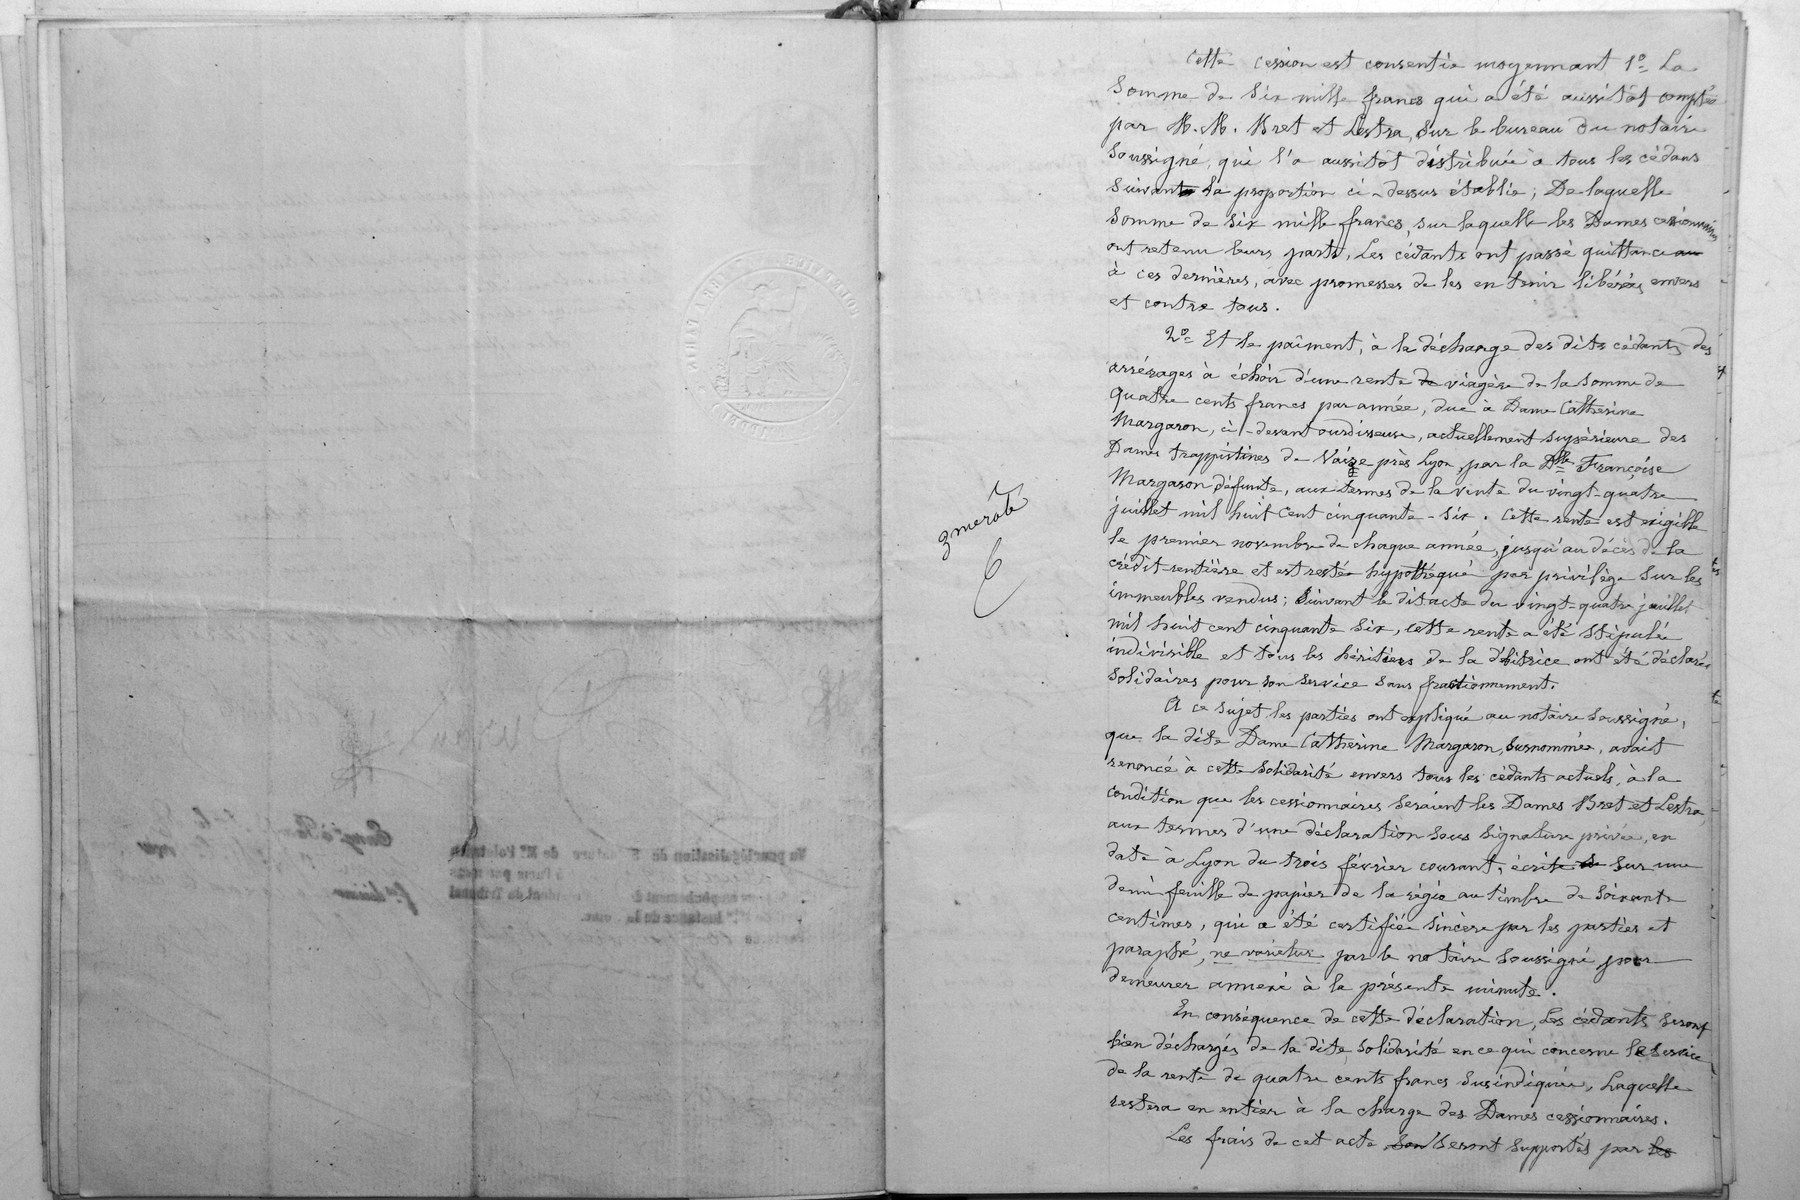 Cette cession est consentie moyennant 1º La
Somme de Six mille francs qui a été aussitôt comptée
par M.M. Bret et Lestra, Sur le bureau du notaire
Soussigné, qui l'a aussitôt distribuée à tous les cédans
Suivant la proportion ci-dessus établie; De laquelle
Somme de Six mille francs, sur laquelle les Dames cessionnaires
ont retenu leurs parts, Les cédants ont passé quittance au
à ces dernières, avec promesses de les en tenir libérées envers
et contre tous.
2º Et le paiment, à la décharge des dits cédants, des
arrérages à échoir d'une rente de viagère de la Somme de
Quatre cents francs par année, due à Dame Catherine
Margaron, ci-devant ourdisseuse, actuellement Supérieure des
Dames trappistines de Vaize près Lyon, par la Dlle Françoise
Margaron défunte, aux termes de la vente du vingt-quatre
juillet mil huit cent cinquante-six. Cette rente est exigible
le premier novembre de chaque année, jusqu'au décès de la
crédit-rentière et est restée hypothéqué par privilège Sur les
immeubles vendus; Suivant le dit acte du vingt-quatre juillet
mil huit cent cinquante Six, cette rente a été Stipulée
indivisible et tous les héritiers de la débitrice ont été déclarés
Solidaires pour son Service Sans fractionnement.
3 me rôle
A ce Sujet les parties ont expliqué au notaire Soussigné,
que la dite Dame Catherine Margaron, Susnommée, avait
renoncé à cette Solidarité envers tous les cédants actuels, à la
condition que les cessionnaires Seraient les Dames Bret et Lestra,
aux termes d'une déclaration Sous Signature privée, en
date à Lyon du trois février courant, écrite Sur une
demi feuille de papier de la régie au timbre de Soixante
centimes, qui a été certifiée Sincère par les parties et
paraphé, ne varietur par le notaire Soussigné pour
demeurer annexé à la présente minute.
En conséquence de cette déclaration, Les cédants Seront
bien déchargés de la dite Solidarité en ce qui concerne le Service
de la rente de quatre cents francs Susindiquée, Laquelle
restera en entier à la charge des Dames cessionnaires.
Les frais de cet acte Seront Supportés par les